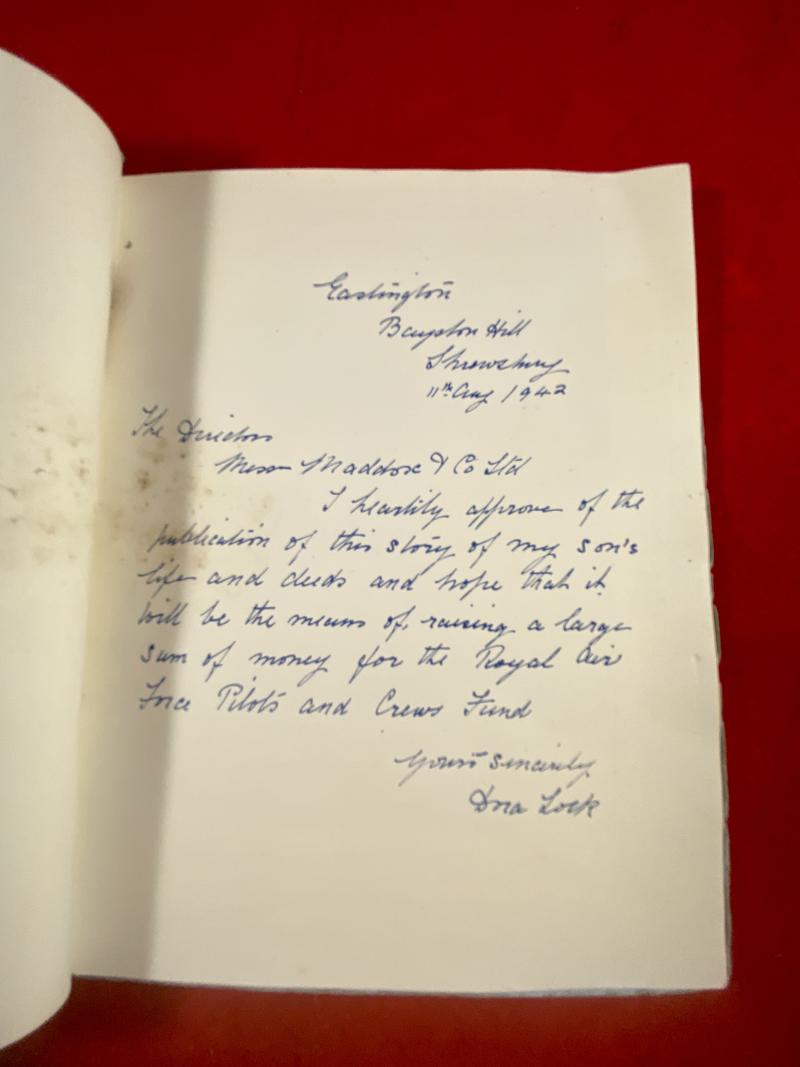 Eastington
Bayston Hill
Shrewsbury
11th Aug 1942
The Directors
Messrs Maddox & Co Ltd
I heartily approve of the
publication of this story of my son's
life and deeds and hope that it
will be the means of raising a large
sum of money for the Royal Air
Force Pilots and Crews Fund
Yours sincerely
Dora Lock